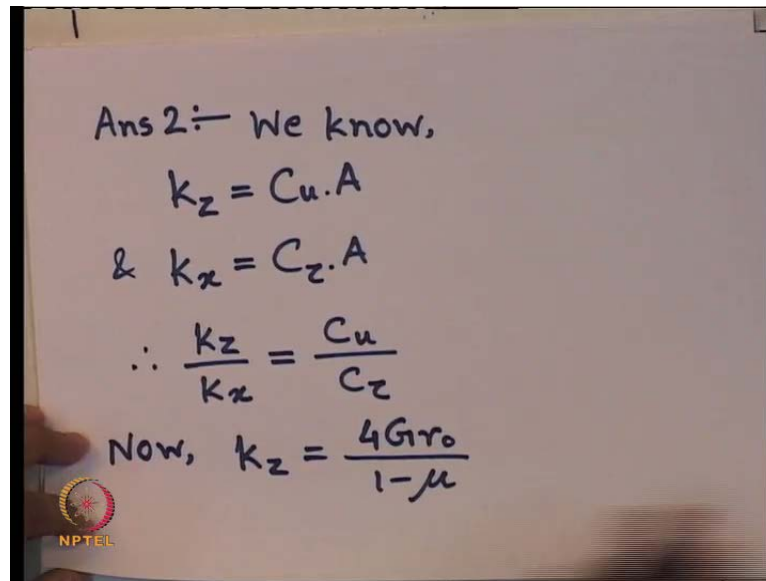 Ans 2:- We know,
k_z = Cu.A
& k_x = C_τ.A
∴ k_z/k_x = Cu/C_τ
Now, k_z = 4Gr₀/1-μ
NPTEL